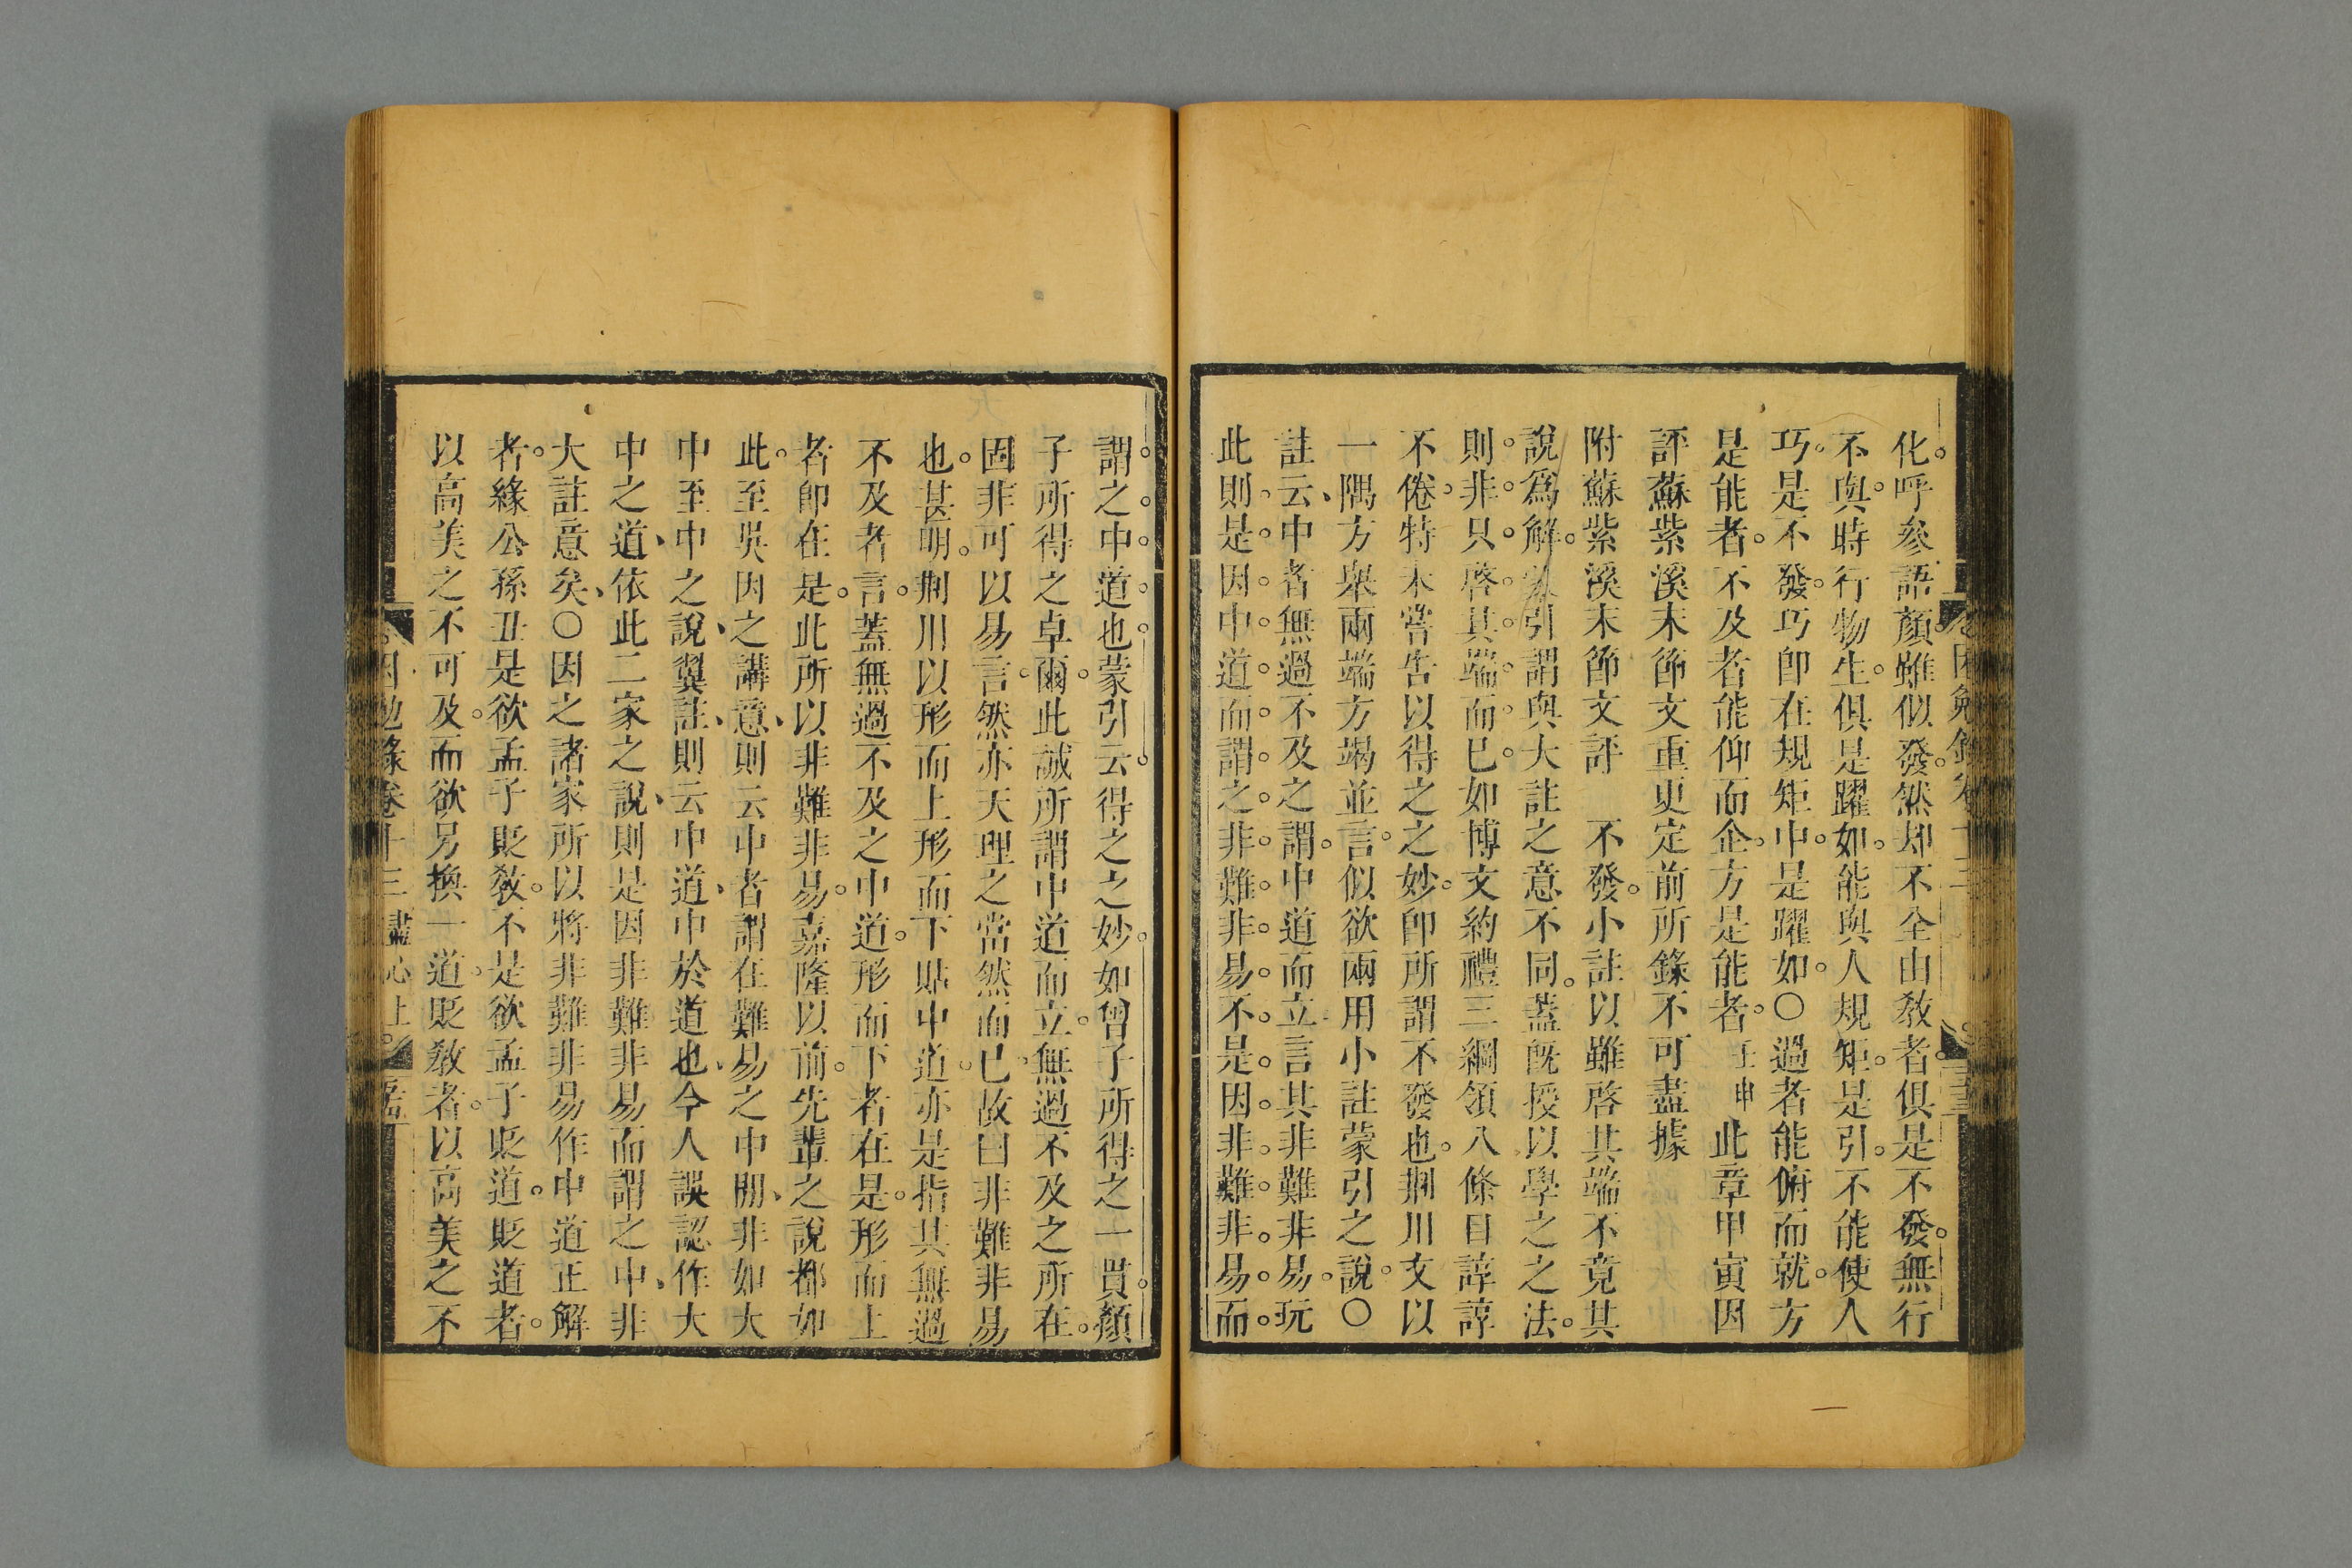 化呼參語顏雖似發然却不全由教者俱是不發無行
不與時行物生俱是躍如能與人規矩是引不能使人
巧是不發巧卽在規矩中是躍如○過者能俯而就方
是能者不及者能仰而企方是能者壬申此章甲寅因
評蘇紫溪末節文重更定前所錄不可盡據
附蘇紫溪末節文評　不發小註以雖啓其端不竟其
說爲解蒙引謂與大註之意不同蓋旣授以學之之法
則非只啓其端而已如博文約禮三綱領八條目諄諄
不倦特未嘗告以得之之妙卽所謂不發也荆川文以
一隅方舉兩端方竭並言似欲兩用小註蒙引之說○
註云中者無過不及之謂中道而立言其非難非易玩
此則是因中道而謂之非難非易不是因非難非易而
謂之中道也蒙引云得之之妙如曾子所得之一貫顏
子所得之卓爾此誠所謂中道而立無過不及之所在
固非可以易言然亦天理之當然而已故曰非難非易
也甚明荆川以形而上形而下貼中道亦是指其無過
不及者言蓋無過不及之中道形而下者在是形而上
者卽在是此所以非難非易嘉隆以前先輩之說都如
此至吳因之講意則云中者謂在難易之中間非如大
中至中之說翼註則云中道中於道也今人誤認作大
中之道依此二家之說則是因非難非易而謂之中非
大註意矣○因之諸家所以將非難非易作中道正解
者緣公孫丑是欲孟子貶敎不是欲孟子貶道貶道者
以高美之不可及而欲另換一道貶敎者以高美之不
困勉錄卷十三 盡心上